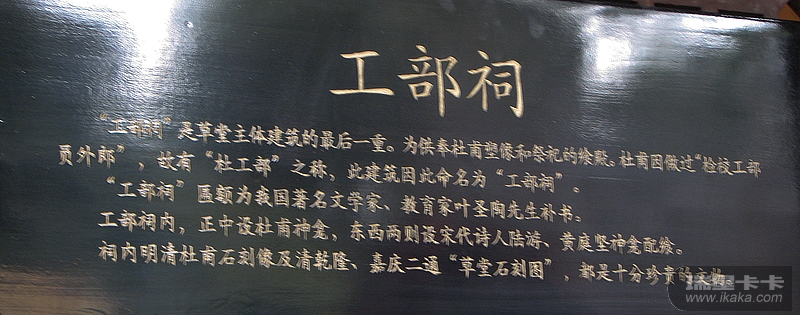 工部祠
“工部祠”是草堂主体建筑的最后一重。为供奉杜甫塑像和祭祀的飨殿。杜甫因做过“检校工部
员外郎”，故有“杜工部”之称，此建筑因此命名为“工部祠”。
“工部祠”匾额为我国著名文学家、教育家叶圣陶先生补书。
工部祠内，正中设杜甫神龛，东西两则设宋代诗人陆游、黄庭坚神龛配飨。
祠内明清杜甫石刻像及清乾隆、嘉庆二通“草堂石刻图”，都是十分珍贵的文物。
瑞星卡卡
www.ikaka.com